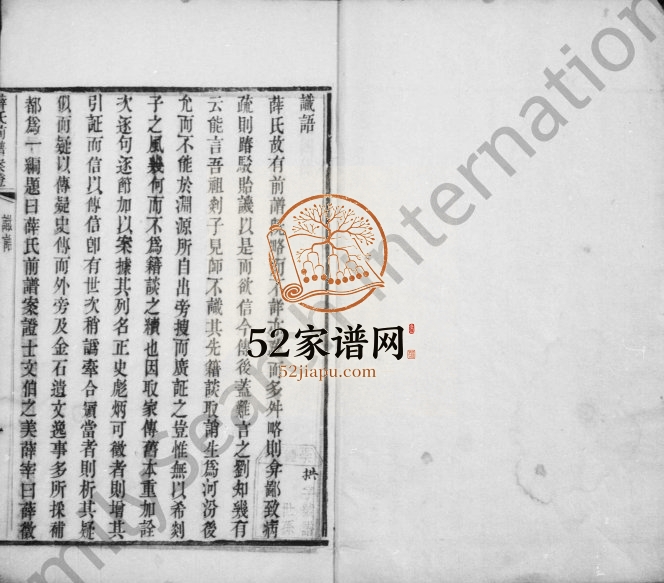 識語
薛氏故有前譜
略而不詳
而多舛略則弇鄙致病
疏則踳駁貽譏以是而欲信今傳後蓋難言之劉知幾有
云能言吾祖剡子見師不識其先籍談取誚生為河汾後
允而不能於淵源所自出旁搜而廣証之豈惟無以希剡
子之風幾何而不為籍談之續也因取家傳舊本重加詮
次逐句逐節加以案據其列名正史彪炳可徵者則增其
引証而信以傳信卽有世次稍譌牽合
當者則析其疑
似而疑以傳疑史傳而外旁及金石遺文逸事多所採補
都為一編題曰薛氏前譜案證士文伯之美薛宰曰薛徵
薛氏前譜案證
識語
拱
52家谱网
52jiapu.com
FamilySearch International